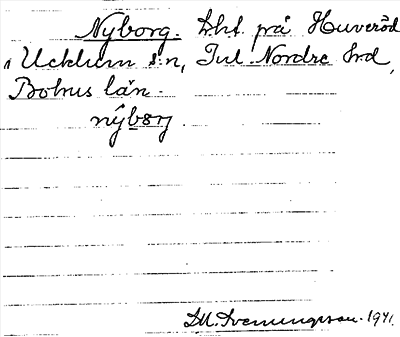 Nyborg. Lht. på Huveröd
i Ucklum s:n, Inl. Nordre hrd,
Bohus län.
nýbɔrj.
D.M. Svenungsson. 1941.